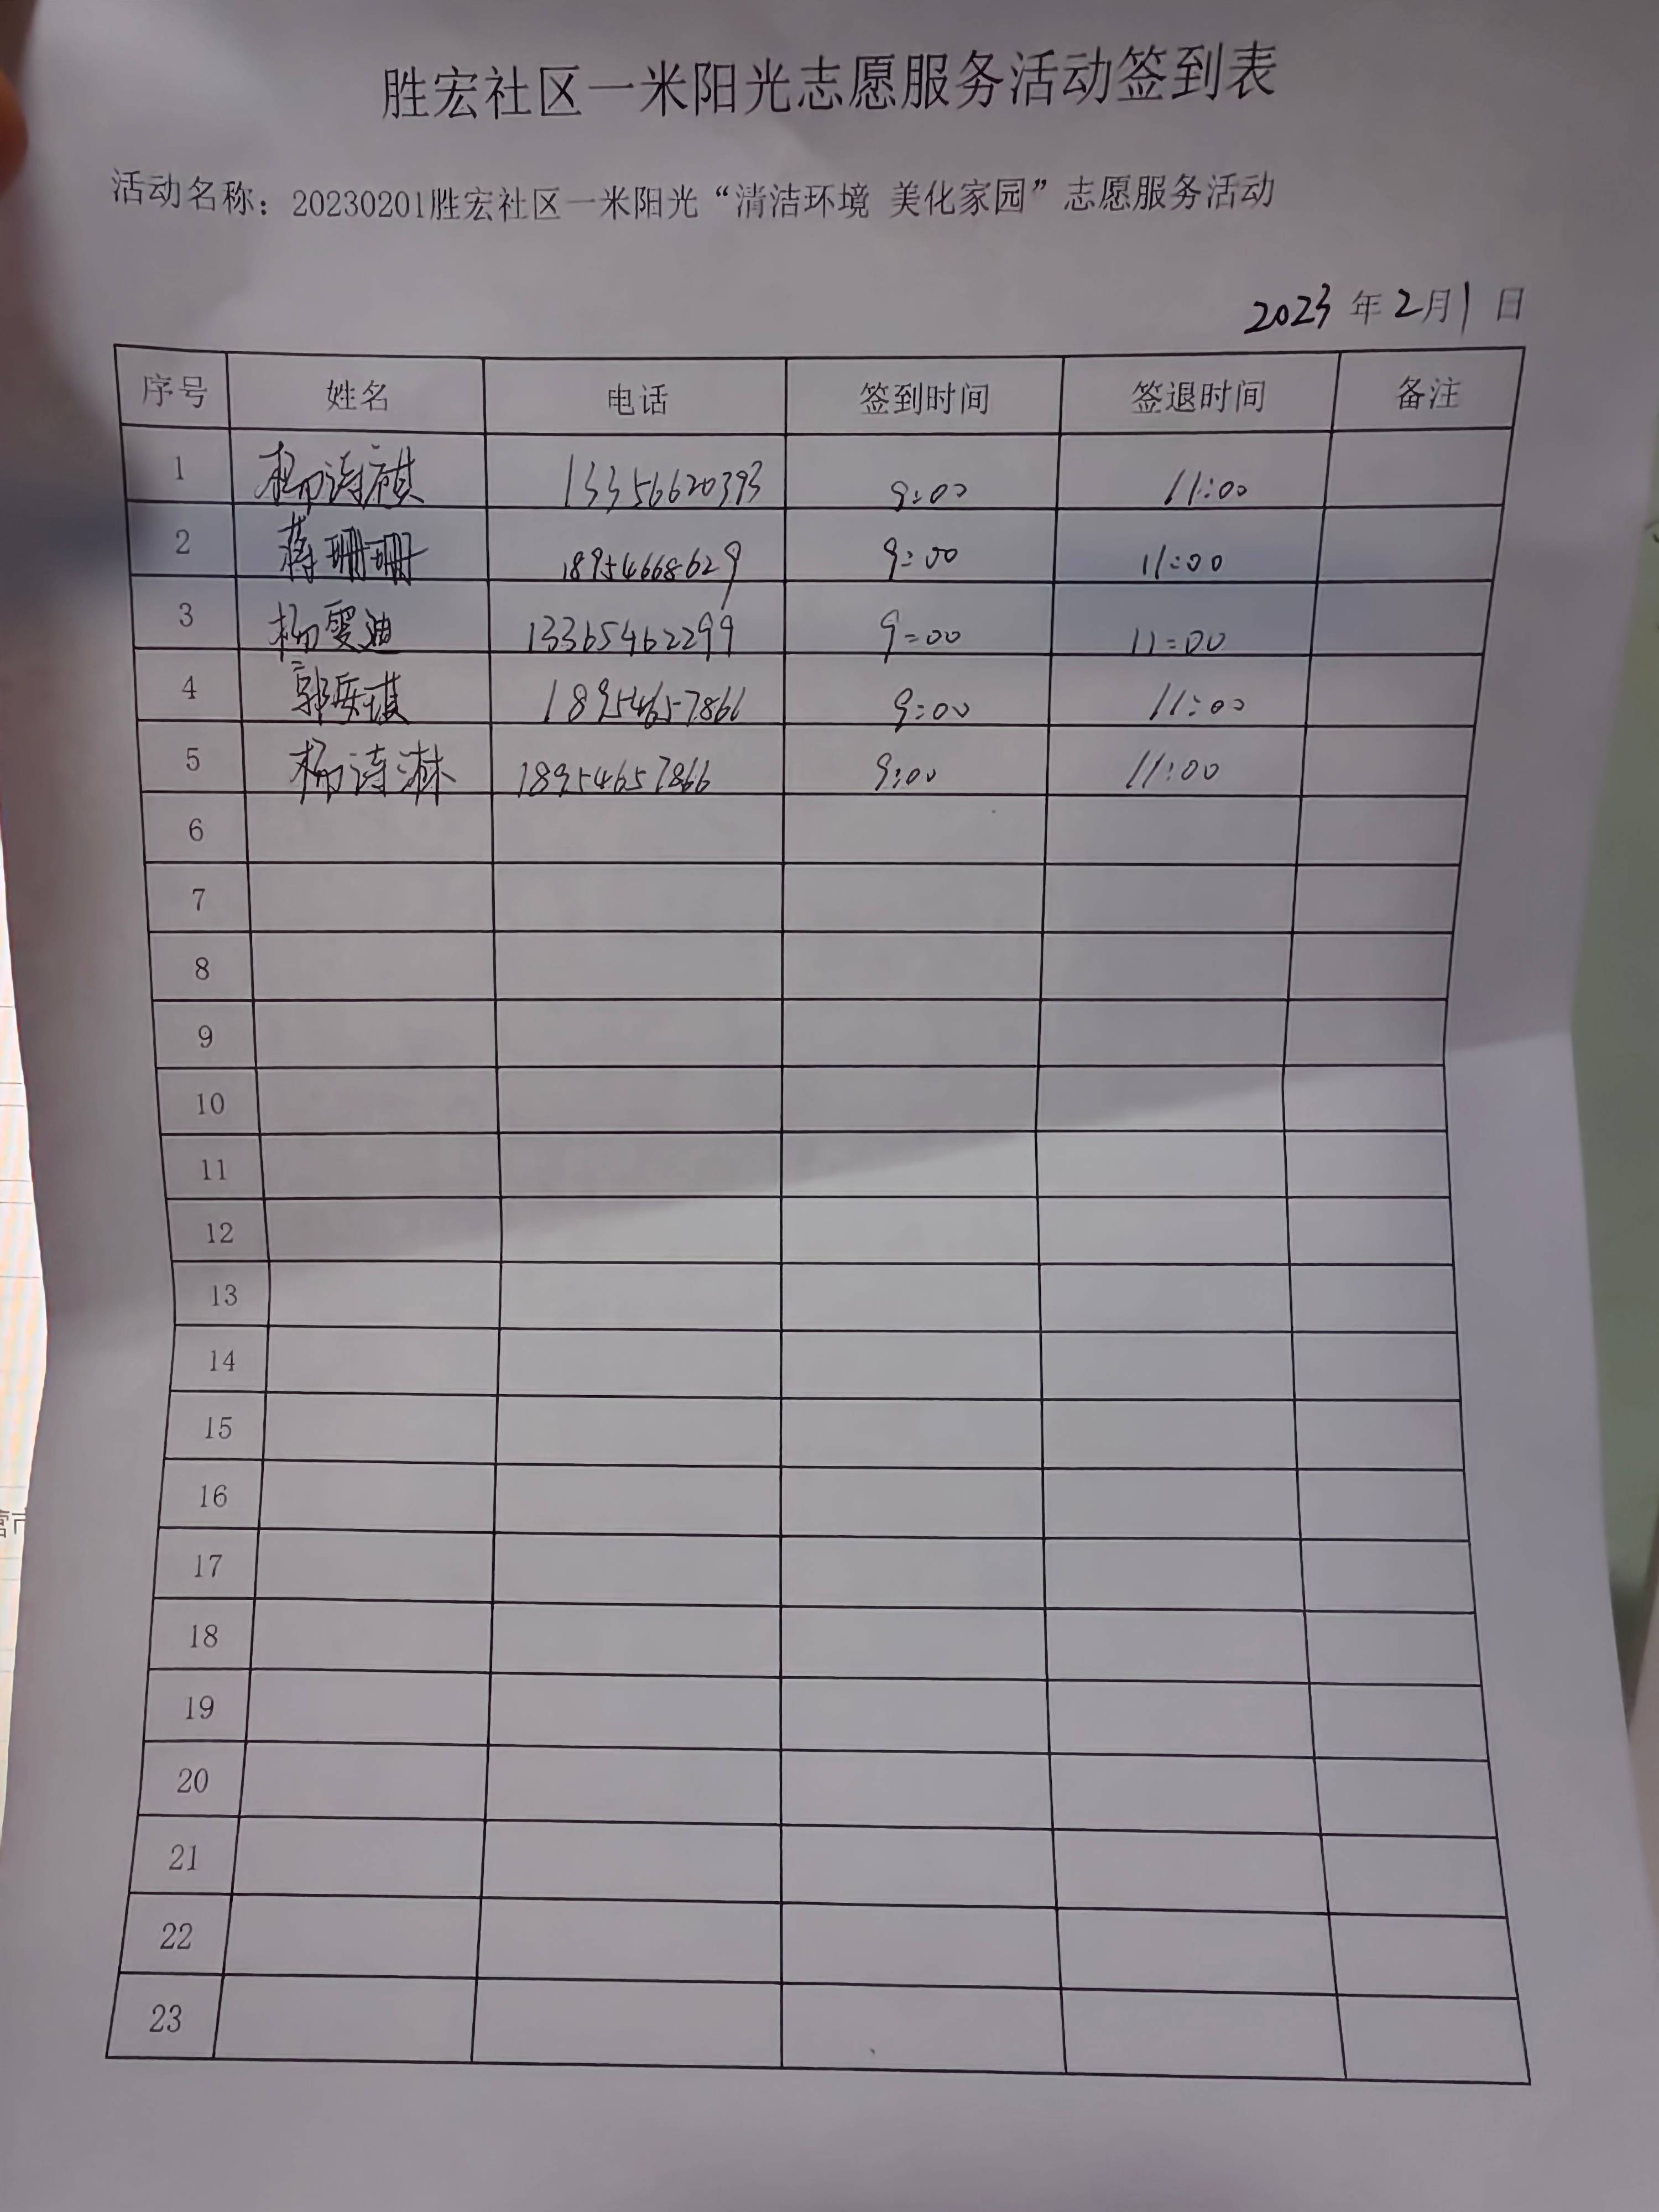 胜宏社区一米阳光志愿服务活动签到表
活动名称：20230201胜宏社区一米阳光“清洁环境 美化家园”志愿服务活动
2023 年 2月1日
序号 姓名 电话 签到时间 签退时间 备注
1 杨诗祺 13356620393 9:00 11:00
2 蒋珊珊 18954668629 9:00 11:00
3 杨雯迪 13365462299 9:00 11:00
4 郭 琪 18954657866 9:00 11:00
5 杨诗淋 18954657866 9:00 11:00
6
7
8
9
10
11
12
13
14
15
16
17
18
19
20
21
22
23
营市